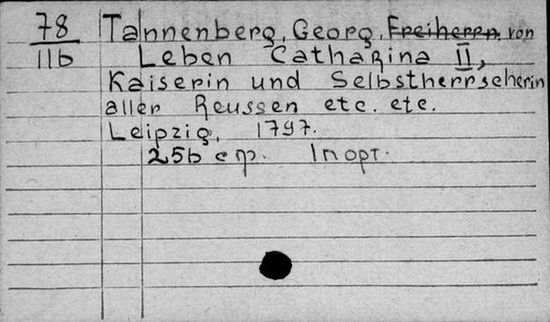 78
IIb
Tannenberg, Georg, Freiherrn von
Leben Catharina II,
Kaiserin und Selbstherrscherin
aller Reussen etc. etc.
Leipzig, 1797.
256 стр. 1 портр.